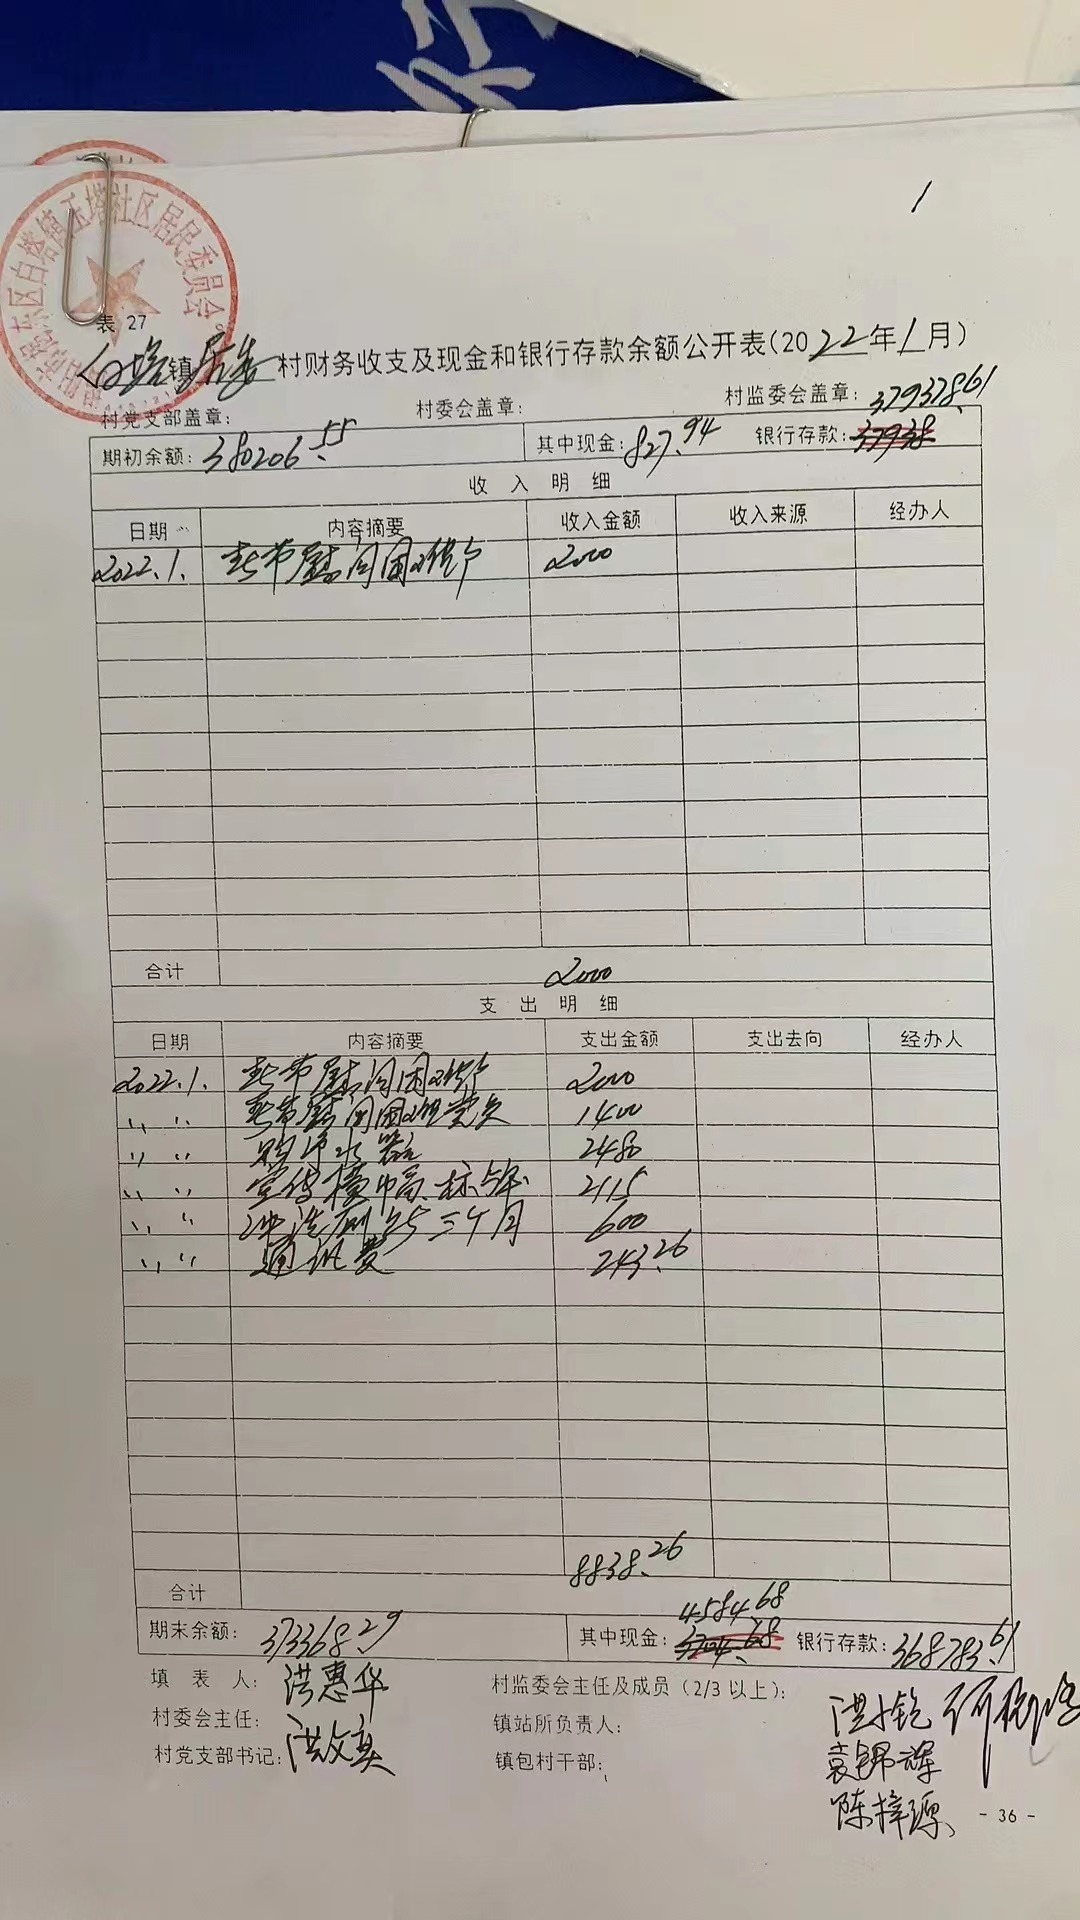 1
表 27
白塔镇居委村财务收支及现金和银行存款余额公开表(2022年1月)
村党支部盖章: 村委会盖章: 村监委会盖章:
379378.61
期初余额: 380206.55 其中现金: 827.94 银行存款: 37938
收 入 明 细
日期 内容摘要 收入金额 收入来源 经办人
2022.1. 春节慰问困难户 2000
合计 2000
支 出 明 细
日期 内容摘要 支出金额 支出去向 经办人
2022.1. 春节慰问困难户 2000
〃 〃 春节慰问困难党员 1400
〃 〃 购净水器 2480
〃 〃 宣传横幅、标 2115
〃 〃 冲洗厕所三个月 600
〃 〃 通讯费 243.26
8838.26
合计
4584.68
期末余额: 373368.29 其中现金: 银行存款: 368783.61
填 表 人: 洪惠华 村监委会主任及成员(2/3 以上):
村委会主任: 镇站所负责人:
村党支部书记: 镇包村干部:
袁锦辉
陈梓源
- 36 -
白塔镇玉塔社区居民委员会